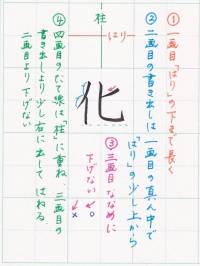 ① 一画目「はり」の下まで長く
② 二画目の書き出しは一画目の真ん中で
「はり」の少し上から
柱
はり
化
③ 三画目ななめに
下げない
④ 四画目のたて線は「柱」に重ね、二画目の
書き出しより少し右に出して はねる
二画目より下げない